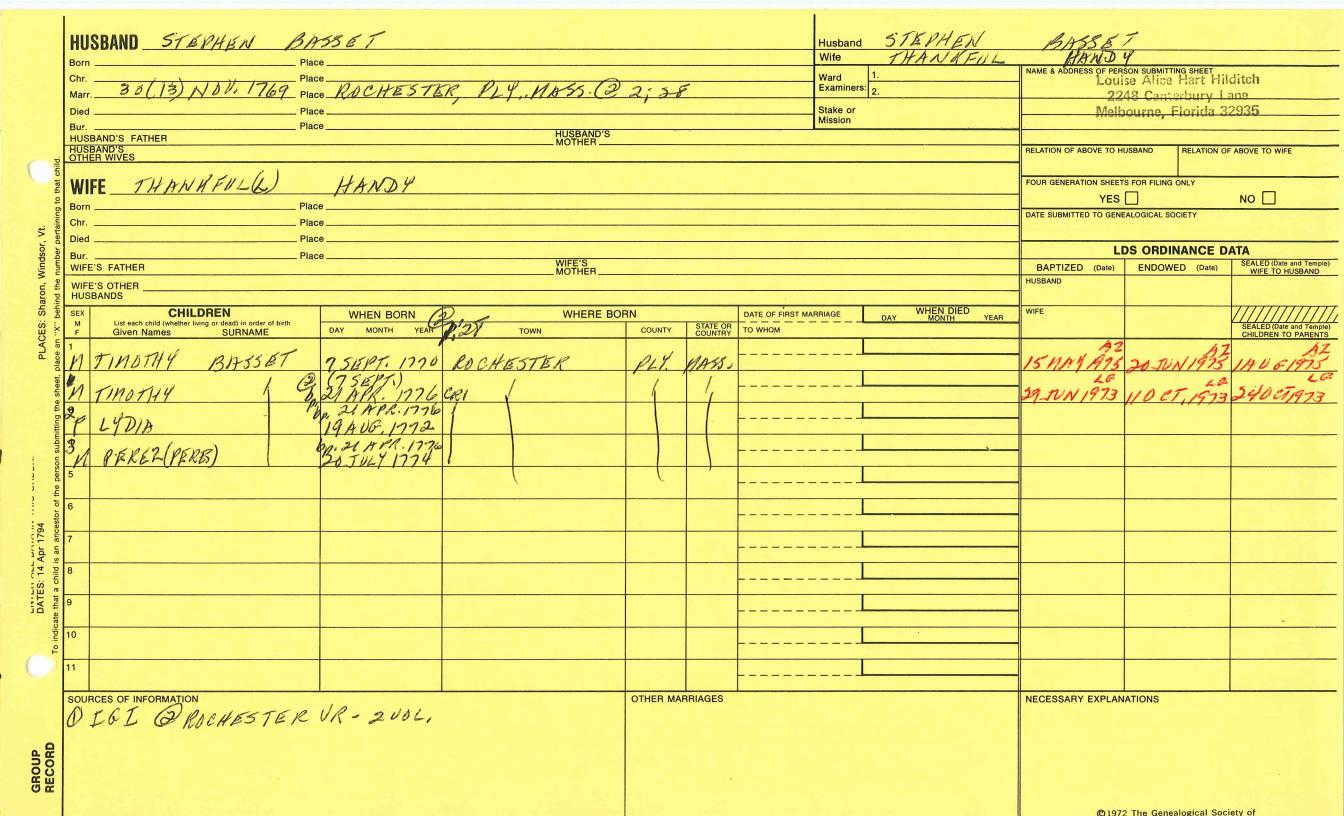 HUSBAND STEPHEN BASSET
Born Place
Chr. Place
Marr. 30(.13) NOV. 1769 Place ROCHESTER, PLY., MASS. @ 2; 28
Died Place
Bur. Place
HUSBAND'S FATHER HUSBAND'S MOTHER
HUSBAND'S OTHER WIVES
WIFE THANKFUL(L) HANDY
Born Place
Chr. Place
Died Place
Bur. Place
WIFE'S FATHER WIFE'S MOTHER
WIFE'S OTHER HUSBANDS
Husband STEPHEN BASSET
Wife THANKFUL HANDY
Ward Examiners: 1.
2.
Stake or Mission
NAME & ADDRESS OF PERSON SUBMITTING SHEET
Louise Alice Hart Hilditch
2248 Canterbury Lane
Melbourne, Florida 32935
RELATION OF ABOVE TO HUSBAND RELATION OF ABOVE TO WIFE
FOUR GENERATION SHEETS FOR FILING ONLY
YES NO
DATE SUBMITTED TO GENEALOGICAL SOCIETY
LDS ORDINANCE DATA
BAPTIZED (Date) ENDOWED (Date) SEALED (Date and Temple) WIFE TO HUSBAND
HUSBAND
WIFE
SEALED (Date and Temple) CHILDREN TO PARENTS
SEX M F
CHILDREN
List each child (whether living or dead) in order of birth
Given Names SURNAME
WHEN BORN @
DAY MONTH YEAR
WHERE BORN
TOWN COUNTY STATE OR COUNTRY
DATE OF FIRST MARRIAGE
TO WHOM
WHEN DIED
DAY MONTH YEAR
1 M TIMOTHY BASSET 7 SEPT. 1770 ROCHESTER PLY. MASS. 15 MAY 1975 AZ 20 JUN 1975 AZ 1 AUG 1975 AZ
M TIMOTHY (7 SEPT.) 21 APR. 1776 29 JUN 1973 LG 11 OCT. 1973 LG 24 OCT 1973 LG
2 F LYDIA bp. 21 APR. 1776
19 AUG. 1772
3 M PEREZ (PERES) bp. 21 APR. 1776
20 JULY 1774
5
6
7
8
9
10
11
SOURCES OF INFORMATION
① IGI ② ROCHESTER VR - 2 VOL.
OTHER MARRIAGES
NECESSARY EXPLANATIONS
©1972 The Genealogical Society of
PLACES: Sharon, Windsor, Vt.
DATES: 14 Apr 1794
To indicate that a child is an ancestor of the person submitting the sheet, place an "X" behind the number pertaining to that child.
GROUP RECORD